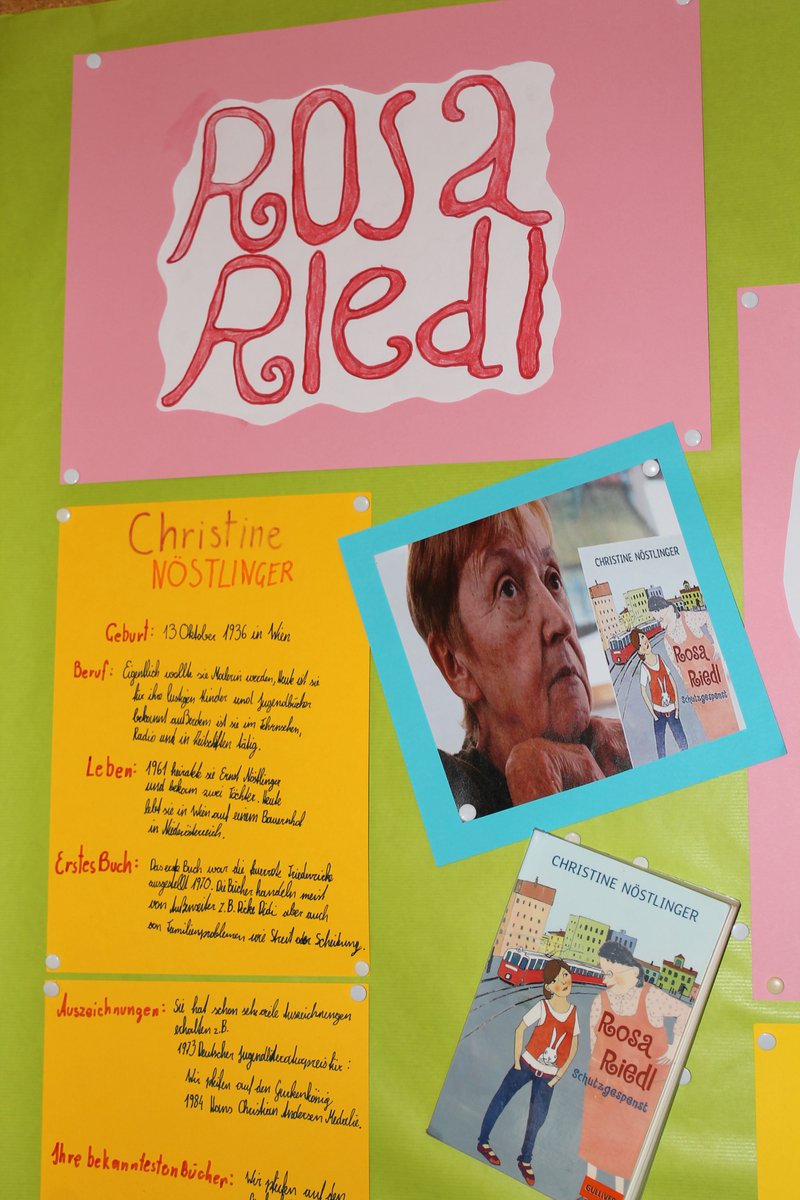 Rosa
Riedl
Christine
NÖSTLINGER
Geburt: 13 Oktober 1936 in Wien
Beruf: Eigentlich wollte sie Malerin werden, Heute ist sie
für ihre lustigen Kinder und Jugendbücher
bekannt außerdem ist sie im Fernsehen,
Radio und in tätig.
Leben: 1961 heiratete sie Ernst Nöstlinger
und bekam zwei Töchter. Heute
lebt sie in Wien auf einem Bauernhof
in Niederösterreich.
Erstes Buch: Das erste Buch war die feuerrote Friederike
ausgestellt 1970. Die Bücher handeln meist
von z.B. aber auch
von Familienproblemen wie Streit oder Scheidung.
Auszeichnungen: Sie hat schon sehr viele Auszeichnungen
erhalten z.B.
1973 Deutscher Jugendliteraturpreis für:
Wir pfeifen auf den Gurkenkönig
1984 Hans Christian Andersen Medalie.
Ihre bekanntesten Bücher: Wir pfeifen auf den
CHRISTINE NÖSTLINGER
Rosa
Riedl
Schutzgespenst
CHRISTINE NÖSTLINGER
Rosa
Riedl
Schutzgespenst
GULLIVER